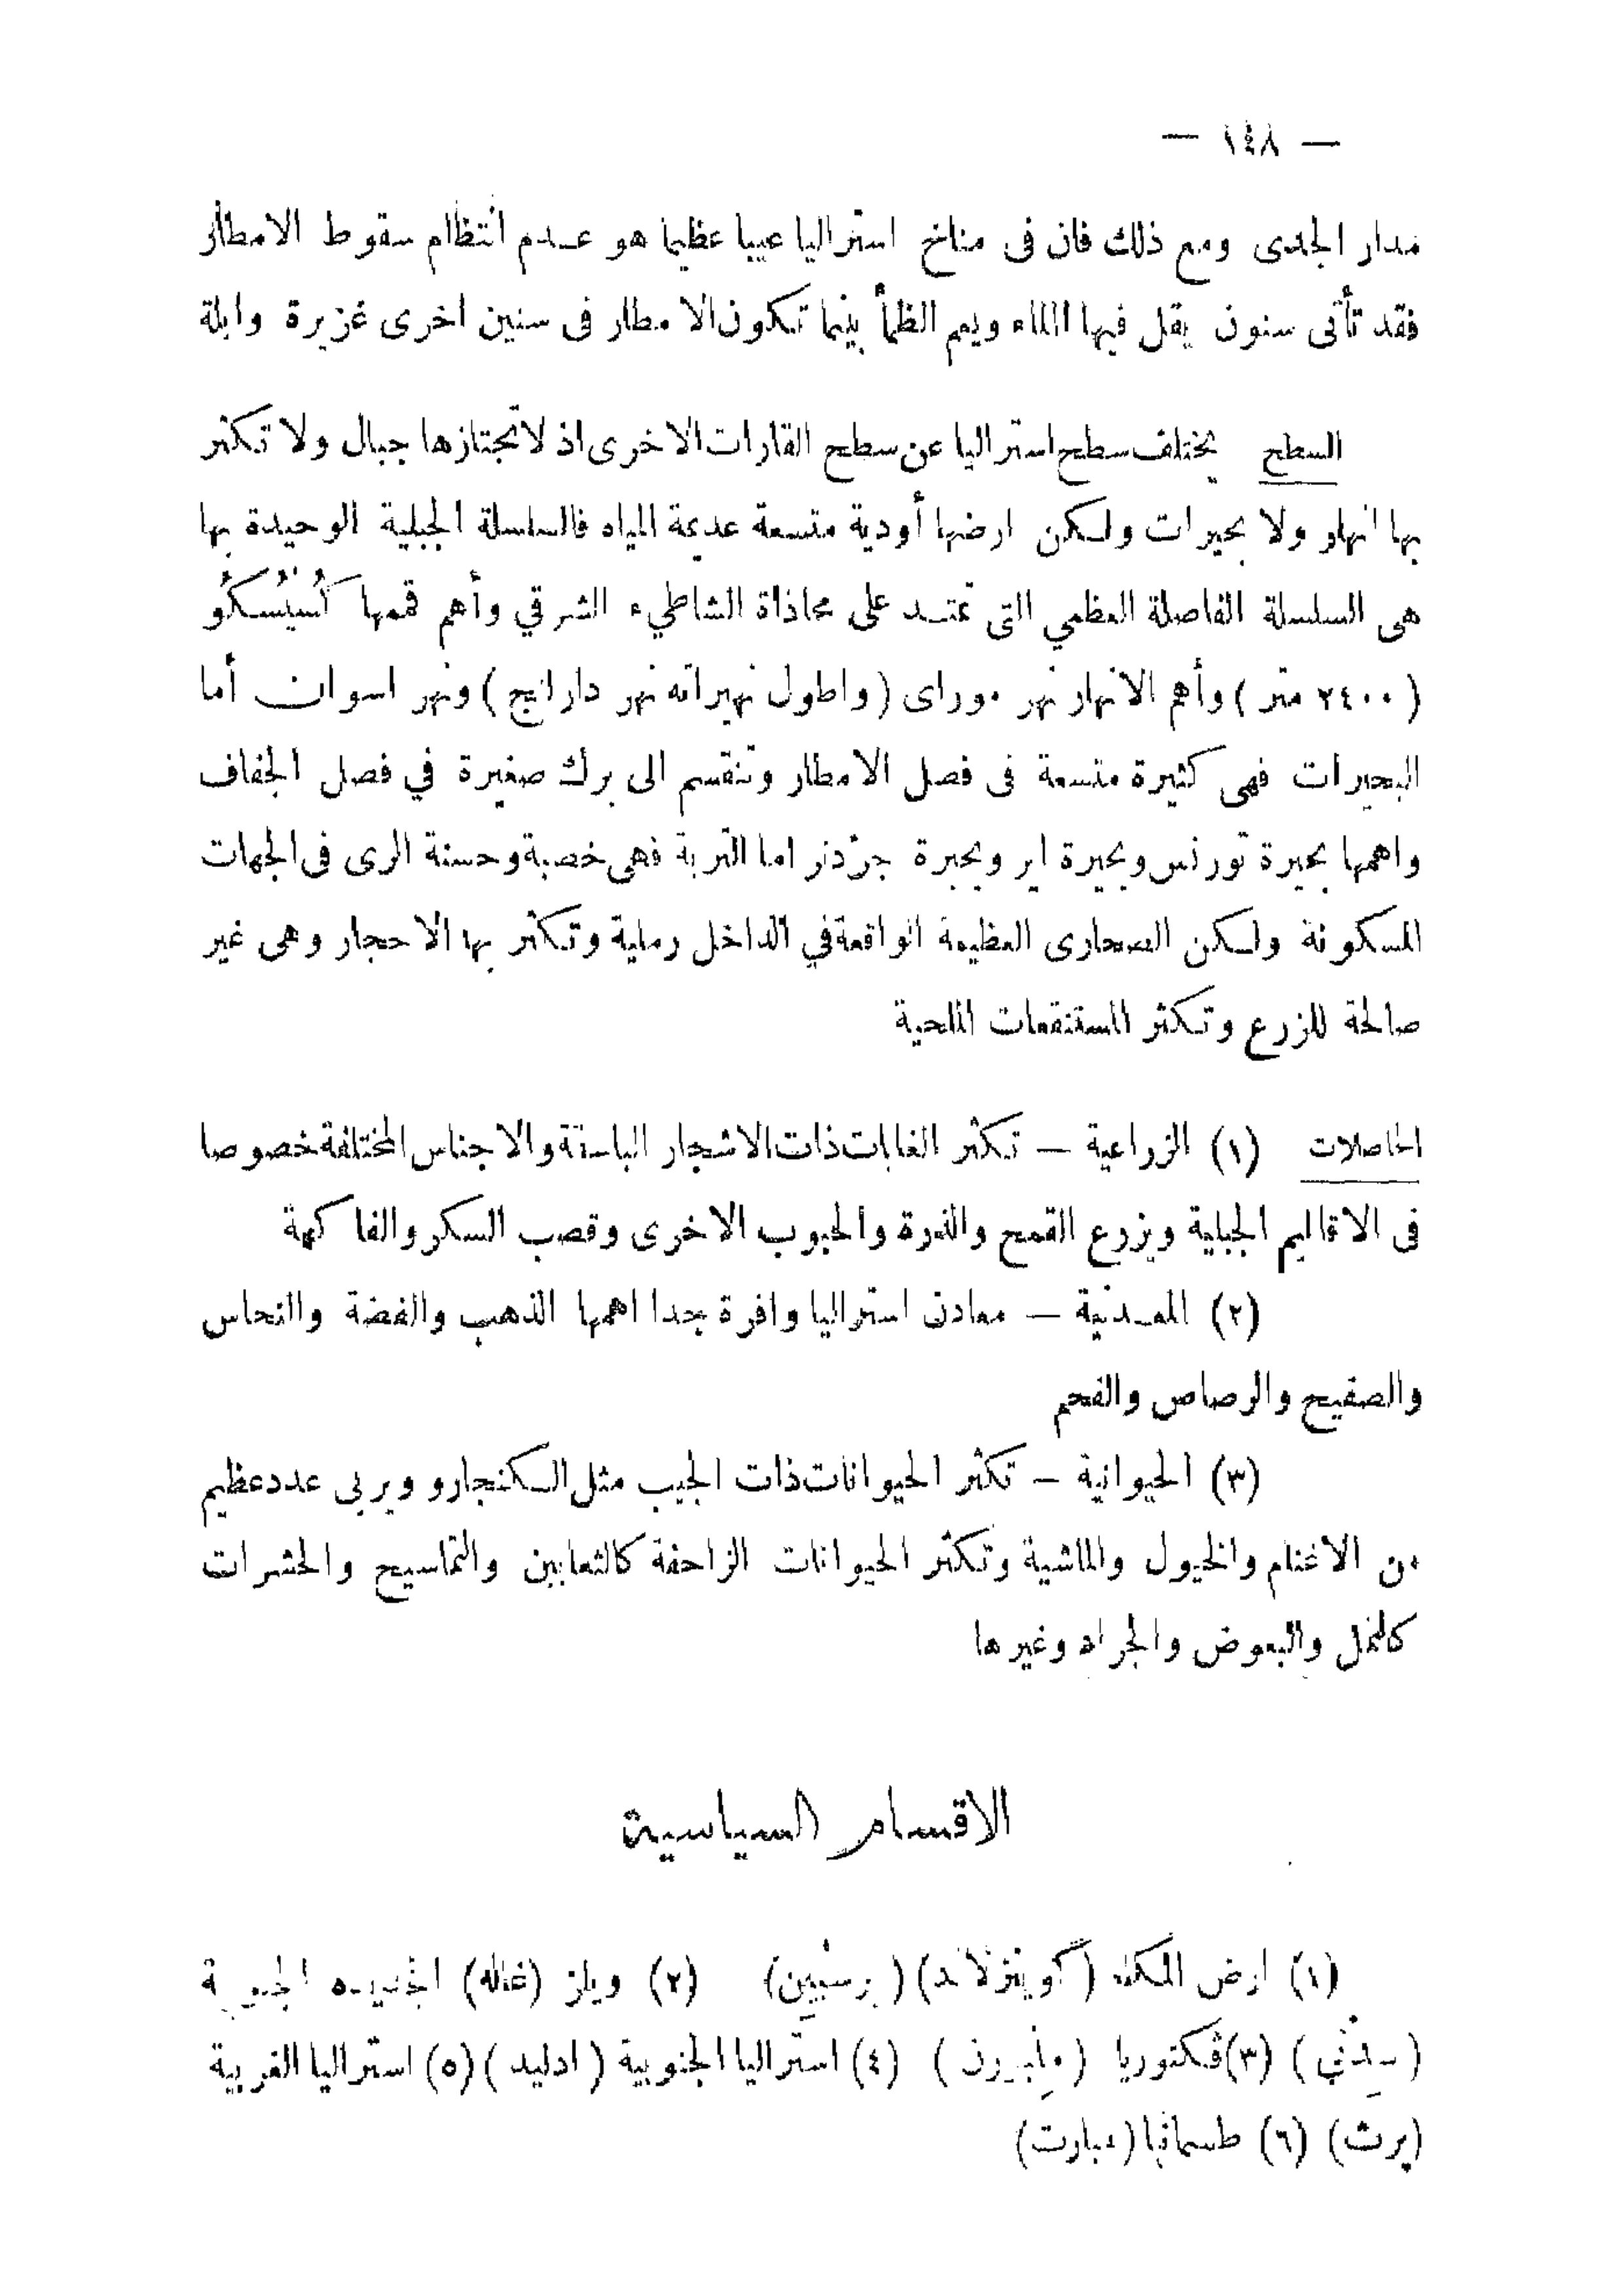 — ١٤٨ —
مدار الجدى ومع ذلك فان فى مناخ استراليا عيبا عظيما هو عدم انتظام سقوط الامطار
فقد تأتى سنون يقل فيها الماء ويعم الظمأ بينما تكون الامطار فى سنين اخرى غزيرة وابلة
السطح يختلف سطح استراليا عن سطح القارات الاخرى اذ لا تجتازها جبال ولا تكثر
بها انهار ولا بحيرات ولكن ارضها أودية متسعة عديمة المياه فالسلسلة الجبلية الوحيدة بها
هى السلسلة الفاصلة العظمي التى تمتد على محاذاة الشاطيء الشرقي وأهم قممها كُسيُسكُو
( ٢٤٠٠ متر ) وأهم الانهار نهر موراى ( واطول نهيراته نهر دارانج ) ونهر اسوان أما
البحيرات فهى كثيرة متسعة فى فصل الامطار وتنقسم الى برك صغيرة في فصل الجفاف
واهمها بحيرة تورنس وبحيرة اير وبحيرة جردنر اما التربة فهى خصبة وحسنة الرى فى الجهات
المسكونة ولكن الصحارى العظيمة الواقعة في الداخل رملية وتكثر بها الاحجار وهى غير
صالحة للزرع وتكثر المستنقعات الملحية
الحاصلات (١) الزراعية — تكثر الغابات ذات الاشجار الباسقة والاجناس المختلفة خصوصا
فى الاقاليم الجبلية ويزرع القمح والذرة والحبوب الاخرى وقصب السكر والفاكهة
(٢) المعدنية — معادن استراليا وافرة جدا اهمها الذهب والفضة والنحاس
والصفيح والرصاص والفحم
(٣) الحيوانية — تكثر الحيوانات ذات الجيب مثل الكنجارو ويربى عدد عظيم
من الاغنام والخيول والماشية وتكثر الحيوانات الزاحفة كالثعابين والتماسيح والحشرات
كالنمل والبعوض والجراد وغيرها
الاقسام السياسية
(١) ارض الملكة (كوينزلاند) (برسبين) (٢) ويلز (غاله) الجديده الجنوبية
( سدني ) (٣) ڤكتوريا ( ملبورن ) (٤) استراليا الجنوبية ( ادليد ) (٥) استراليا الغربية
(پرث) (٦) طسمانيا (هبارت)